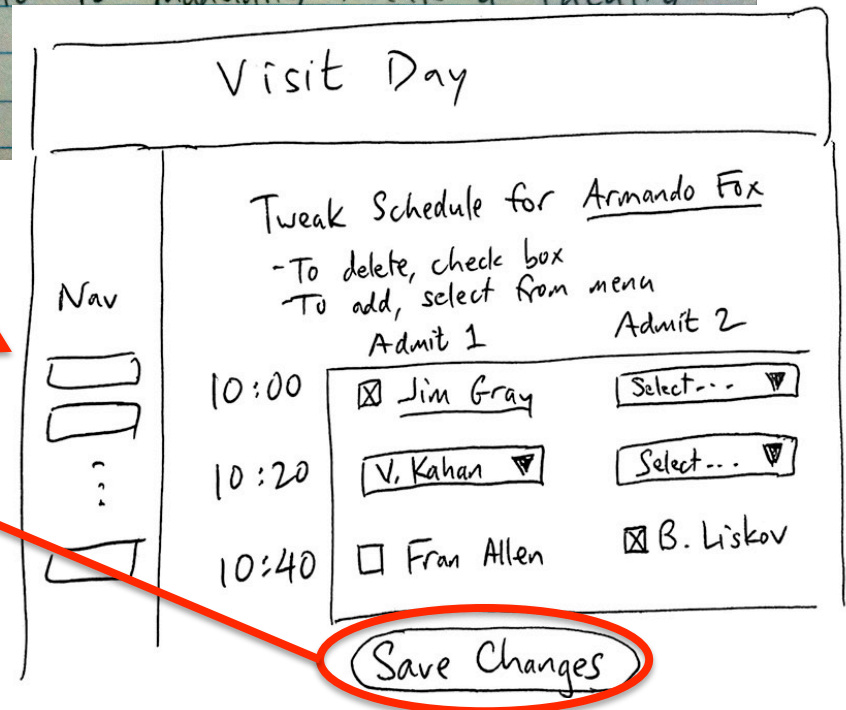 Visit Day
Tweak Schedule for Armando Fox
-To delete, check box
-To add, select from menu
Nav
Admit 1 Admit 2
10:00 Jim Gray Select...
10:20 V. Kahan Select...
10:40 Fran Allen B. Liskov
Save Changes